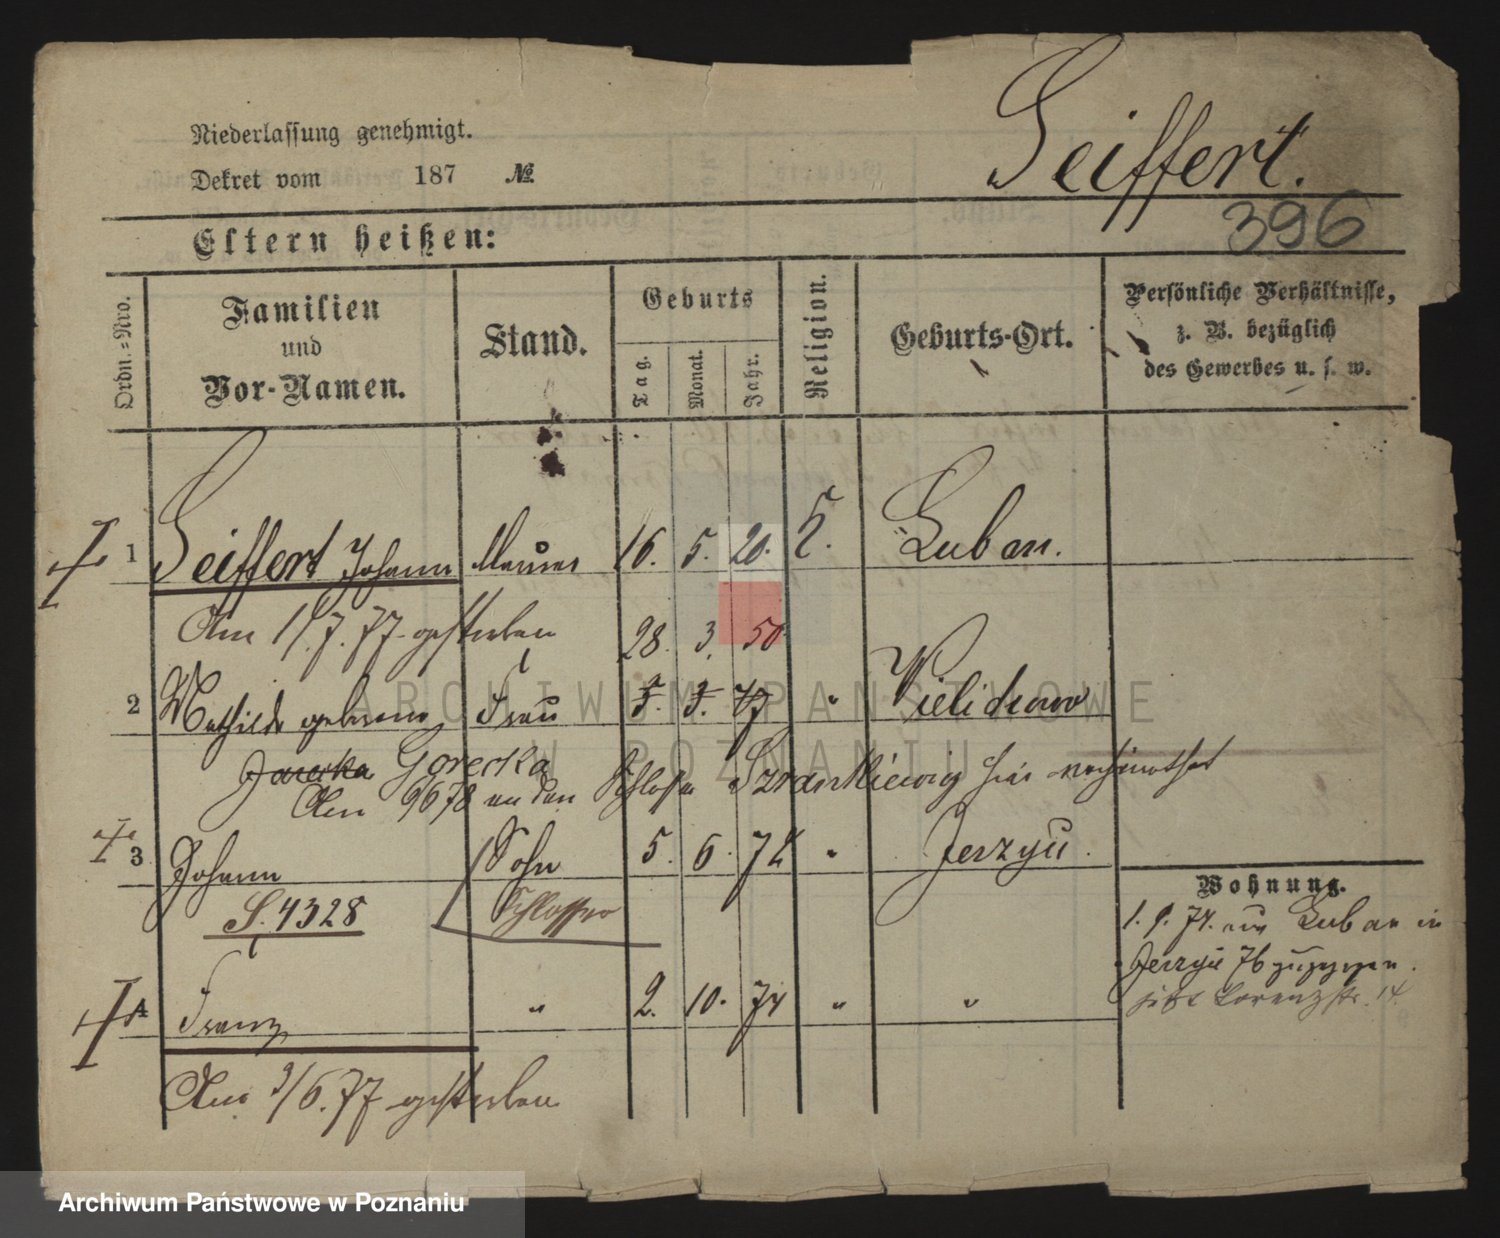 Niederlassung genehmigt.
Dekret vom 187 №
Seiffert.
396
Eltern heißen:
Ordn.-Nro.
Familien und Vor-Namen.
Stand.
Geburts
Tag.
Monat.
Jahr.
Religion.
Geburts-Ort.
Persönliche Verhältnisse,
z. B. bezüglich
des Gewerbes u. s. w.
1 Seiffert Johann Maurer 16. 5. 20. Luban.
Am 1/7. 77 gestorben
28. 3. 50
2 Mathilde geborene Frau 3. 77 "
Jarecka Gorecka
Am 9678 an den Schlosser Szrankiewig hier verheirathet
3 Johann Sohn 5. 6. 74 " Jerzyce.
S. 4328 Schlosser
4 Franz " 2. 10. 74 " "
Am 3/6. 77 gestorben
Wohnung.
1. 9. 74. aus Luban in
Jerzyce 76 zugezogen.
jetzt Lorenzstr. 14.
ARCHIWUM PAŃSTWOWE
W POZNANIU
Archiwum Państwowe w Poznaniu